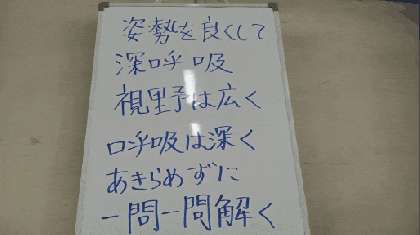 姿勢を良くして
深呼吸
視野は広く
呼吸は深く
あきらめずに
一問一問解く